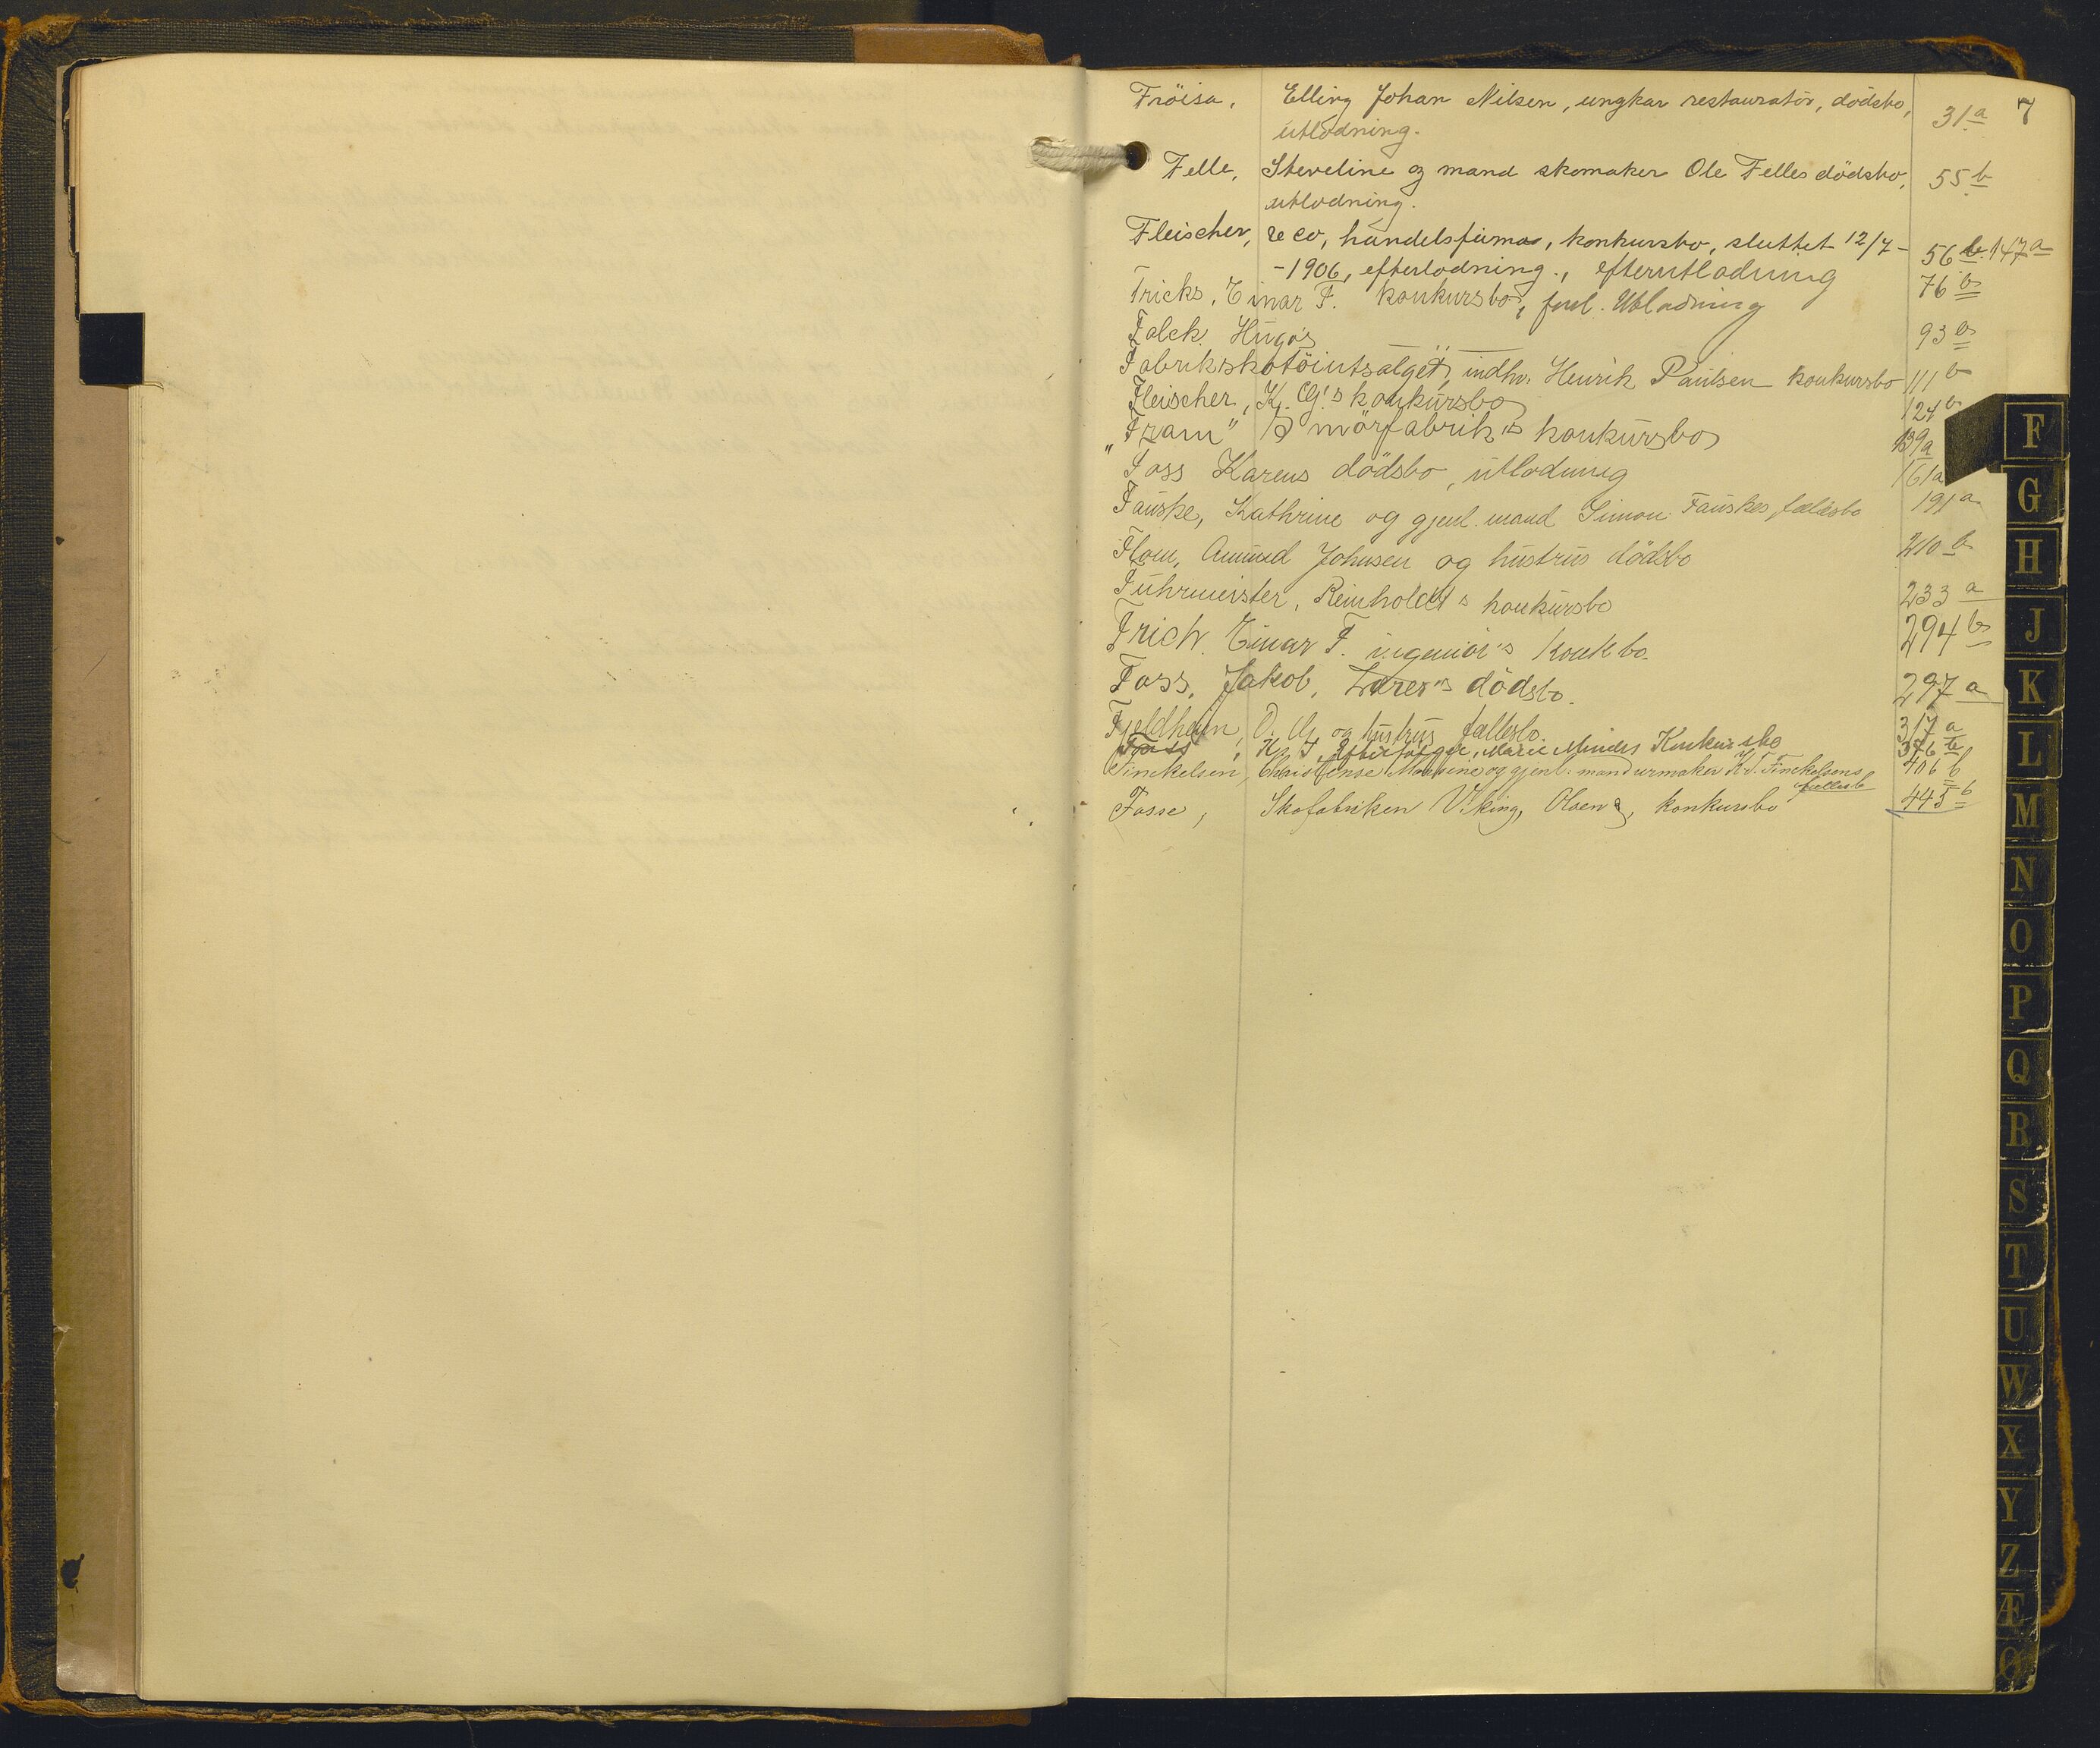 7
Fröisa, Elling Johan Nilsen, ungkar restauratör, dödsbo, 31 a
utlodning.
Felle, Steveline og mand skomaker Ole Felles dödsbo, 55 b
utlodning.
Fleischer, & co, handelsfirma, konkursbo, sluttet 12/7- 56 b. 147 a
-1906, efterlodning., efterutlodning
Fricks, Einar F. konkursbo, forel. Utlodning 76 b
Falck. Hugo's 93 b
Fabrikskotöiutsalget, indh. Henrik Paulsen konkursbo 111 b
Fleischer, K. G.'s konkursbo 124 b
"Fram" smörfabrik's konkursbo 139 a
Foss Karens dödsbo, utlodning 161 a
Fauske, Kathrine og gjenl. mand Simon Fauskes fællesbo 191 a
Flom, Amund Johnsen og hustrus dödsbo 210 b
Führmeister, Reinholdt's konkursbo 233 a
Frich. Einar F. ingeniör's konkbo. 294 b
Foss, Jakob, dödsbo. 297 a
Fjeldheim, O. og hustrus fællesbo. 317 a
Foss, Hr. F. Efterfölger, Marie Mindes Konkursbo 376 b
Finckelsen, Christense og gjenl. mand urmaker K. J. Finckelsens 406 b
fællesb
Fosse, Skofabriken Viking, Olsen &, konkursbo 445 b
F
G
H
J
K
L
M
N
O
P
Q
R
S
T
U
W
X
Y
Z
Æ
Ø